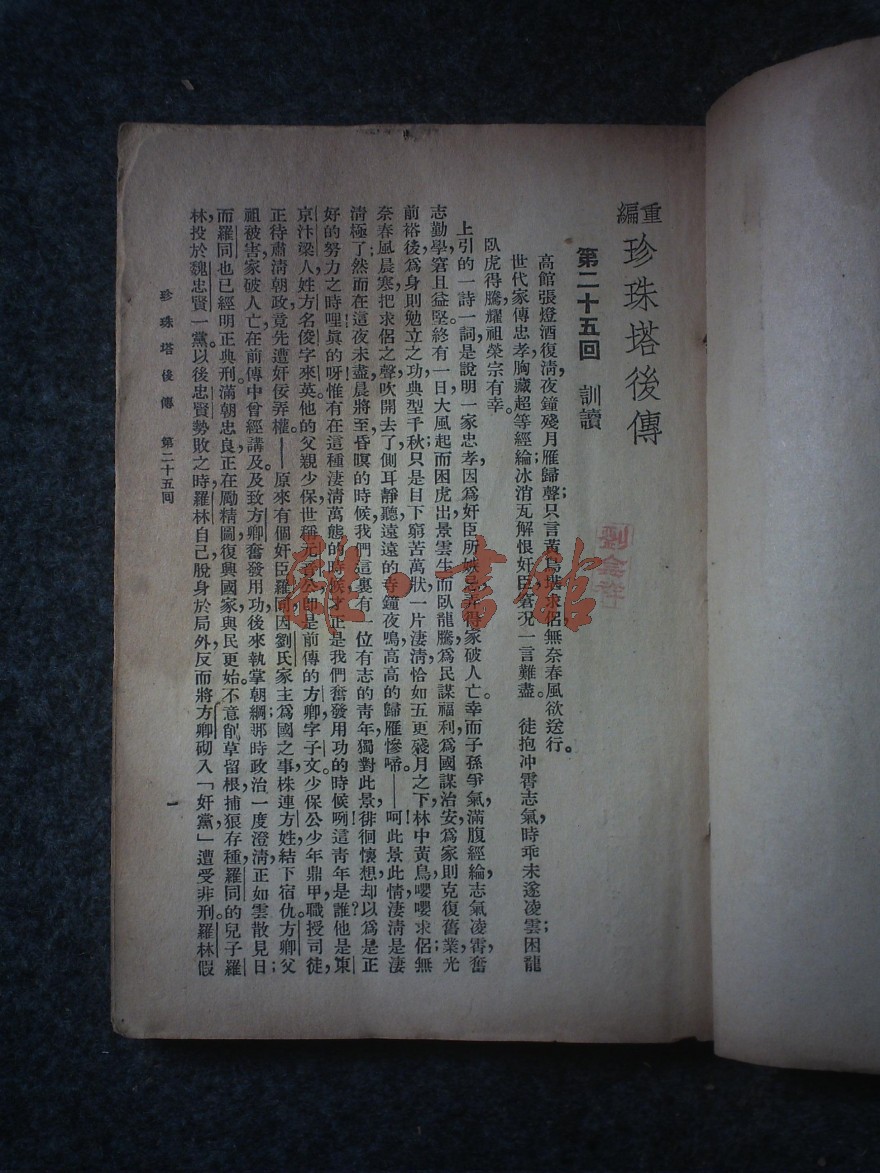 重編 珍珠塔後傳
第二十五回 訓讀
高館張燈酒復清，夜鐘殘月雁歸聲；只言黃鳥堪求侶，無奈春風欲送行。
世代家傳忠孝，胸藏超等經綸；冰消瓦解恨奸臣，窘況一言難盡。 徒抱冲霄志氣，時乖未遂凌雲；困龍
臥虎得騰，耀祖榮宗有幸。
上引的一詩一詞，是說明一家忠孝，因爲奸臣所嫉忌，弄得家破人亡。幸而子孫爭氣，滿腹經綸，志氣凌霄，奮
志勤學，窘且益堅，終有一日，大風起而困虎出，景雲生而臥龍騰，爲民謀福利，爲國謀治安，爲家則克復舊業，光
前裕後，爲身則勉立之功，典型千秋；只是目下窮苦萬狀，一片淒清，恰如五更殘月之下，林中黃鳥，嚶嚶求侶，無
奈春風晨寒，把求侶之聲吹開去了，側耳靜聽，遠遠的寺鐘夜鳴，高高的歸雁慘啼。——呵！此景此情，淒清是淒
清極了；然而在這夜未盡，晨將至，昏暝的時候，我們這裏有一位有志的青年，獨對此景，徘徊懷想，却以爲是正
好的努力之時哩！眞的呀！惟有在這種淒清萬態的時候，才正是我們奮發用功的時候咧！這青年是誰？他是東
京汴梁人，姓方名俊，字來英。他的父親少保，世稱元音公，即是前傳的方卿，字子文。少保公少年鼎甲，職授司徒，
正待肅清朝政，竟先遭奸佞弄權。——原來有個奸臣羅同，因劉氏家主爲國之事，株連方姓，結下宿仇。方卿父
祖被害，家破人亡，在前傳中曾經講及。及致方卿奮發用功，後來執掌朝綱，那時政治一度澄清，正如雲散見日；
而羅同也已經明正典刑。滿朝忠良，正在勵精圖復，興國家，與民更始。不意削草留根，捕狼存種，羅同的兒子羅
林，投於魏忠賢一黨。以後忠賢勢敗之時，羅林自己脫身於局外，反而將方卿砌入「奸黨」，遭受非刑。羅林假
珍珠塔後傳 第二十五回 一
雜·書館